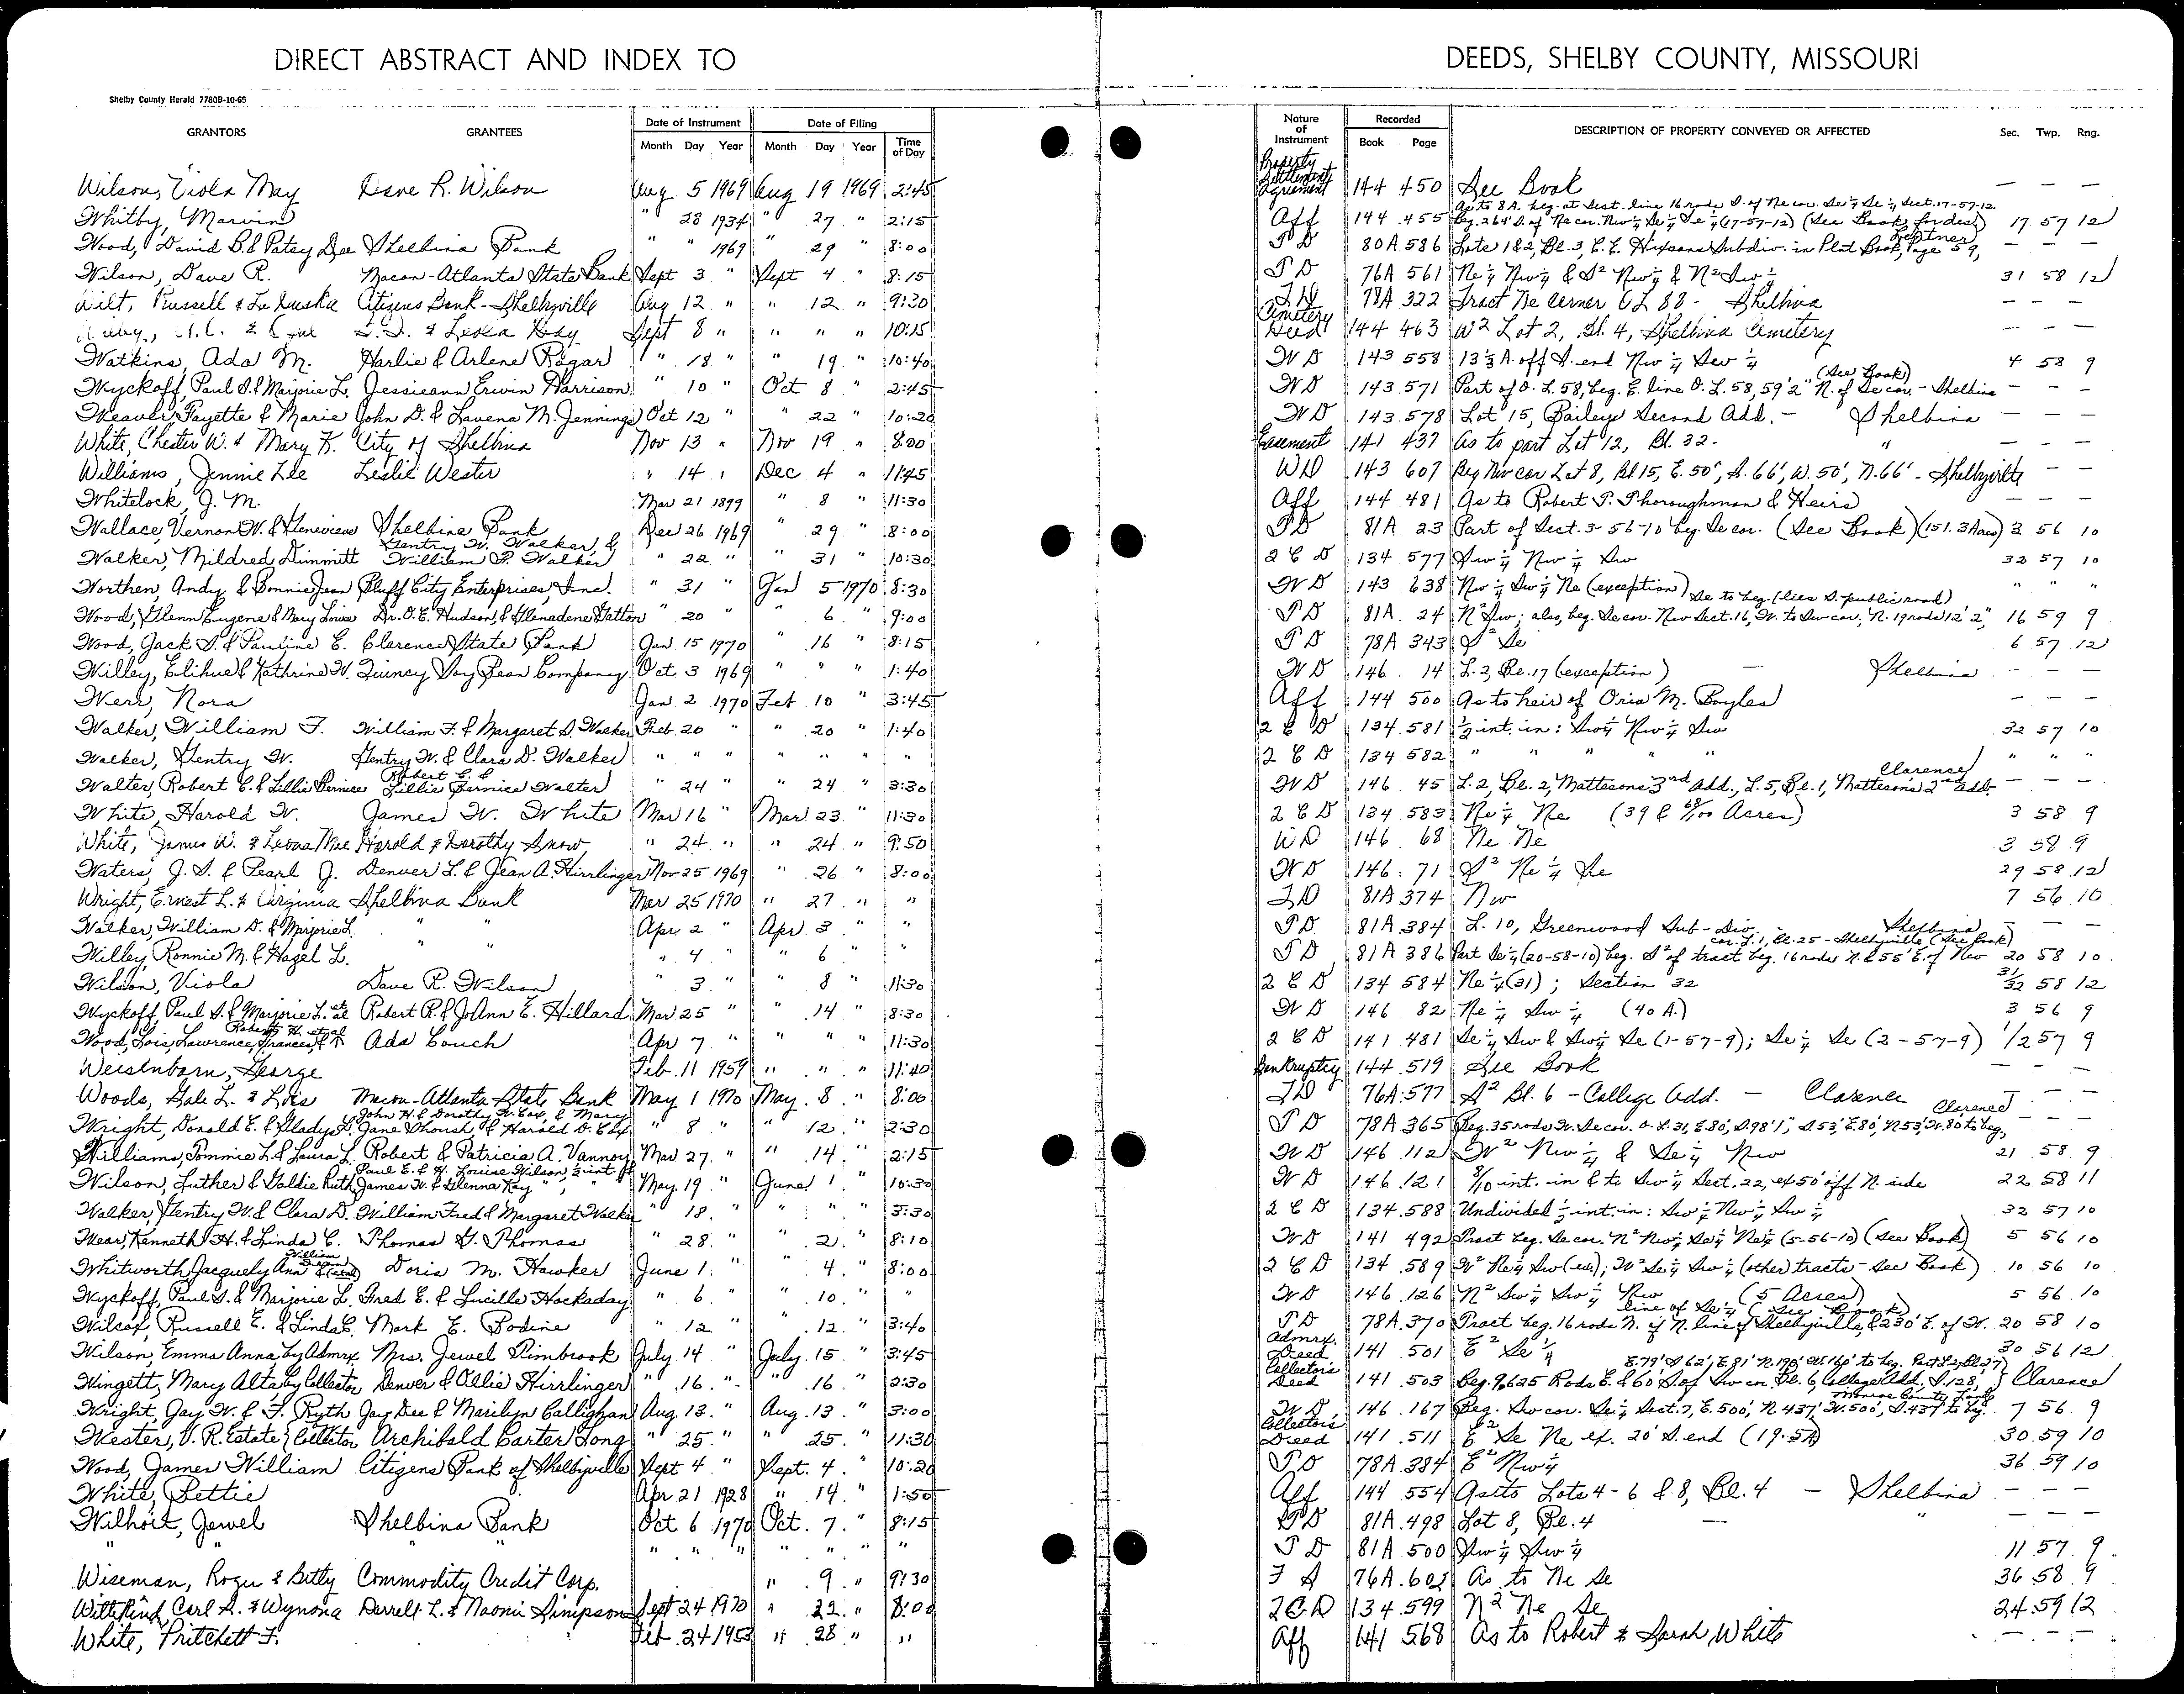 DIRECT ABSTRACT AND INDEX TO DEEDS, SHELBY COUNTY, MISSOURI
Shelby County Herald 7780B-10-65
GRANTORS GRANTEES Date of Instrument Month Day Year Date of Filing Month Day Year Time of Day Nature of Instrument Recorded Book Page DESCRIPTION OF PROPERTY CONVEYED OR AFFECTED Sec. Twp. Rng.
Wilson, Viola May Dave R. Wilson Aug 5 1969 Aug 19 1969 2:45 Property Settlement Agreement 144 450 See Book — — —
Whitby, Marvin " 28 1934 " 27 " 2:15 Aff 144 455 As to 8 A. beg. at Sect. line 16 rods S. of Ne cor. Se 1/4 Se 1/4 Sect. 17-57-12. Beg. 264' S. of Ne cor. Nw 1/4 Se 1/4 Se 1/4 (17-57-12) (See Book for des) 17 57 12
Wood, David B. & Patsy Dee Shelbina Bank " " 1969 " 29 " 8:00 T D 80A 586 Lots 1 & 2, Bl. 3, C. E. Hixsons Subdiv. in Plat Book, Page 59, — — —
Wilson, Dave R. Macon-Atlanta State Bank Sept 3 " Sept 4 " 8:15 T D 76A 561 Ne 1/4 Nw 1/4 & S2 Nw 1/4 & N2 Sw 1/4 31 58 12
Wilt, Russell & La Duska Citizens Bank - Shelbyville Aug 12 " " 12 " 9:30 T D 78A 322 Tract Ne corner OL 88 - Shelbina — — —
& Leola Day Sept 8 " " " " 10:15 Cemetery Deed 144 463 W2 Lot 2, Bl. 4, Shelbina Cemetery — — —
Watkins, Ada M. Harlie & Arlene Ragar " 18 " " 19 " 10:40 W D 143 558 13 1/3 A. off S. end Nw 1/4 Sw 1/4 4 58 9
Wyckoff, Paul S. & Marjorie L. Jessieann Erwin Harrison " 10 " Oct 8 " 2:45 W D 143 571 Part of O. L. 58, beg. E. line O. L. 58, 59'2" N. of Se cor. - Shelbina (See Book) — — —
Weaver, Fayette & Marie John D. & Lavena M. Jennings Oct 12 " " 22 " 10:20 W D 143 578 Lot 15, Baileys Second Add. - Shelbina — — —
White, Chester W. & Mary K. City of Shelbina Nov 13 " Nov 19 " 8:00 Easement 141 437 As to part Lot 12, Bl. 32 - " — — —
Williams, Jennie Lee Leslie Wester " 14 " Dec 4 " 11:45 W D 143 607 Beg Nw cor Lot 8, Bl 15, E. 50', S. 66', W. 50', N. 66' - Shelbyville — —
Whitelock, J. M. Mar 21 1899 " 8 " 11:30 Aff 144 481 As to Robert T. Thoroughman & Heirs — — —
Wallace, Vernon W. & Genevieve Shelbina Bank Dec 26 1969 " 29 " 8:00 T D 81A 23 Part of Sect. 3-56-10 beg. Se cor. (See Book) (151.3 Acres) 3 56 10
Walker, Mildred Dimmitt Gentry W. Walker, & William F. Walker " 22 " " 31 " 10:30 2 C D 134 577 Sw 1/4 Nw 1/4 Sw 32 57 10
Worthen, Andy & Bonnie Jean Bluff City Enterprises, Inc. " 31 " Jan 5 1970 8:30 W D 143 638 Nw 1/4 Sw 1/4 Ne (exception) " " "
Wood, Glenn Eugene & Mary Louise Dr. O. E. Hudson, & Glenadene Gatton " 20 " " 6 " 9:00 T D 81A 24 N2 Sw; also, beg. Se cor. Nw Sect. 16, W. to Sw cor; N. 19 rods 12'2", Se to beg. (lies S. public road) 16 59 9
Wood, Jack S. & Pauline E. Clarence State Bank Jan 15 1970 " 16 " 8:15 T D 78A 343 S2 Se 6 57 12
Willey, Elihue & Kathrine W. Quincy Soy Bean Company Oct 3 1969 " " " 1:40 W D 146 14 L. 2, Bl. 17 (exception) — Shelbina — — —
Werr, Nora Jan 2 1970 Feb 10 " 3:45 Aff 144 500 As to heir of Oria M. Boyles — — —
Walker, William F. William F. & Margaret S. Walker Feb. 20 " " 20 " 1:40 2 C D 134 581 1/2 int. in: Sw 1/4 Nw 1/4 Sw 32 57 10
Walker, Gentry W. Gentry W. & Clara D. Walker " " " " " " " 2 C D 134 582 " " " " " " "
Walter, Robert C. & Lillie Bernice Robert C. & Lillie Bernice Walter " 24 " " 24 " 3:30 W D 146 45 L. 2, Bl. 2, Mattesons 3rd Add., L. 5, Bl. 1, Matteson's 2nd Add. Clarence — — —
White, Harold W. James W. White Mar 16 " Mar. 23 " 11:30 2 C D 134 583 Ne 1/4 Ne (39 & 68/100 Acres) 3 58 9
White, James W. & Leona Mae Harold & Dorothy Snow " 24 " " 24 " 9:50 W D 146 68 Ne Ne 3 58 9
Waters, J. S. & Pearl J. Denver L. & Jean A. Hirrlinger Nov 25 1969 " 26 " 8:00 W D 146 71 S2 Ne 1/4 Se 29 58 12
Wright, Ernest L. & Virginia Shelbina Bank Mar 25 1970 " 27 " " T D 81A 374 Nw 7 56 10
Walker, William D. & Marjorie L. " " Apr 2 " Apr 3 " " T D 81A 384 L. 10, Greenwood Sub-Div. - Shelbina — —
Willey, Ronnie M. & Hazel L. " " " 4 " " 6 " " T D 81A 386 Part Se 1/4 (20-58-10) beg. S2 of tract beg. 16 rods N. & 55' E. of Nw cor. L. 1, Bl. 25 - Shelbyville (See Book) 20 58 10
Wilson, Viola Dave R. Wilson " 3 " " 8 " 11:30 2 C D 134 584 Ne 1/4 (31); Section 32 31/32 58 12
Wyckoff, Paul S. & Marjorie L. et al Robert R. & JoAnn E. Hillard Mar 25 " " 14 " 8:30 W D 146 82 Ne 1/4 Sw 1/4 (40 A.) 3 56 9
Wood, Lois, Lawrence, Frances, Robert H. et al Ada Couch Apr 7 " " " " 11:30 2 C D 141 481 Se 1/4 Sw & Sw 1/4 Se (1-57-9); Se 1/4 Se (2-57-9) 1/2 57 9
Weisenborn, George Feb. 11 1959 " " " 11:40 Bankruptcy 144 519 See Book — — —
Woods, Gale L. & Lois Macon-Atlanta State Bank May 1 1970 May 8 " 8:00 T D 76A 577 S2 Bl. 6 - College Add. — Clarence — — —
Wright, Donald E. & Gladys L. John H. & Dorothy W. Cox, & Mary Jane Shoush & Harold D. Cox " 8 " " 12 " 2:30 T D 78A 365 Beg. 35 rods W. Se cor. O. L. 31, E. 80', S. 98'1", S. 53', E. 80', N. 53', W. 80 to beg., Clarence — — —
Williams, Tommie L. & Laura L. Robert & Patricia A. Vannoy Mar 27 " " 14 " 2:15 W D 146 112 W2 Nw 1/4 & Se 1/4 Nw 21 58 9
Wilson, Luther & Goldie Ruth Paul E. & H. Louise Wilson, 1/2 int & James W. & Glenna Kay " , " May 19 " June 1 " 10:30 W D 146 121 8/10 int. in & to Sw 1/4 Sect. 22, ex 50' off N. side 22 58 11
Walker, Gentry W. & Clara D. William Fred & Margaret Walker " 18 " " " " 3:30 2 C D 134 588 Undivided 1/2 int. in: Sw 1/4 Nw 1/4 Sw 1/4 32 57 10
Wear, Kenneth H. & Linda C. Thomas G. Thomas " 28 " " 2 " 8:10 W D 141 492 Tract beg. Se cor. N2 Nw 1/4 Se 1/4 Ne 1/4 (5-56-10) (See Book) 5 56 10
Whitworth, Jacquely Ann & William Doris M. Hawker June 1 " " 4 " 8:00 2 C D 134 589 W2 Ne 1/4 Sw (ex); W2 Se 1/4 Sw 1/4 (other tracts - See Book) 10 56 10
Wyckoff, Paul S. & Marjorie L. Fred E. & Lucille Hockaday " 6 " " 10 " " W D 146 126 N2 Sw 1/4 Sw 1/4 Nw (5 Acres) 5 56 10
Wilcox, Russell E. & Linda C. Mark E. Bodine " 12 " " 12 " 3:40 T D 78A 370 Tract beg. 16 rods N. of N. line of Shelbyville, & 230' E. of W. line of Se 1/4 (See Book) 20 58 10
Wilson, Emma Anna, by Admrx Mrs. Jewel Rimbrook July 14 " July 15 " 3:45 Admrx. Deed 141 501 E2 Se 1/4 30 56 12
Wingett, Mary Alta by Collector Denver & Ollie Hirrlinger " 16 " " 16 " 2:30 Collector's Deed 141 503 Beg. 9.625 Rods E. & 60' S. of Sw cor. Bl. 6, College Add. S. 128', E. 79' S. 62', E. 81' N. 190' W. 160' to beg. Part L 2, Bl 27 Clarence
Wright, Jay W. & F. Ruth Jay Dee & Marilyn Callighan Aug 13 " Aug. 13 " 3:00 W D 146 167 Beg. Sw cor. Se 1/4 Sect. 7, E. 500', N. 437', W. 500', S. 437' to beg. Monroe County Land 7 56 9
Wester, V. R. Estate Collector Archibald Carter Long " 25 " " 25 " 11:30 Collector's Deed 141 511 E2 Se Ne ex. 20' S. end (19.5A) 30 59 10
Wood, James William Citizens Bank of Shelbyville Sept 4 " Sept. 4 " 10:20 T D 78A 384 E2 Nw 1/4 36 59 10
White, Bettie Apr 21 1928 " 14 " 1:50 Aff 144 554 As to Lots 4-6 & 8, Bl. 4 — Shelbina — — —
Wilhoit, Jewel Shelbina Bank Oct 6 1970 Oct. 7 " 8:15 T D 81A 498 Lot 8, Bl. 4 — " — — —
" " " " " " " " " " T D 81A 500 Sw 1/4 Sw 1/4 11 57 9
Wiseman, Roger & Betty Commodity Credit Corp. " 9 " 9:30 F S 76A 602 As to Ne Se 36 58 9
Wittekind, Carl S. & Wynona Darrell L. & Naomi Simpson Sept 24 1970 " 22 " 8:00 2 C D 134 599 N2 Ne Se 24 59 12
White, Pritchett F. Feb 24 1953 " 28 " " Aff 141 568 As to Robert & Sarah White — — —